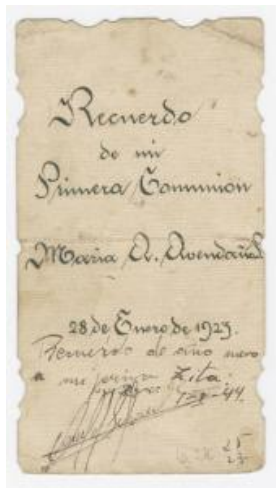 Recuerdo
de mi
Primera Communion
Maria A. Avendaño
28 de Enero de 1923.
Recuerdo de año nuevo
a mi Zita.
1-1-44.